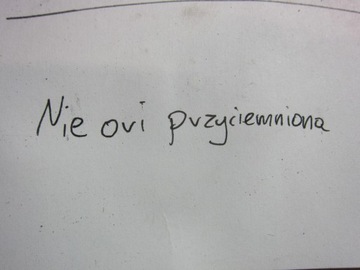 Nie ovi przyciemniona